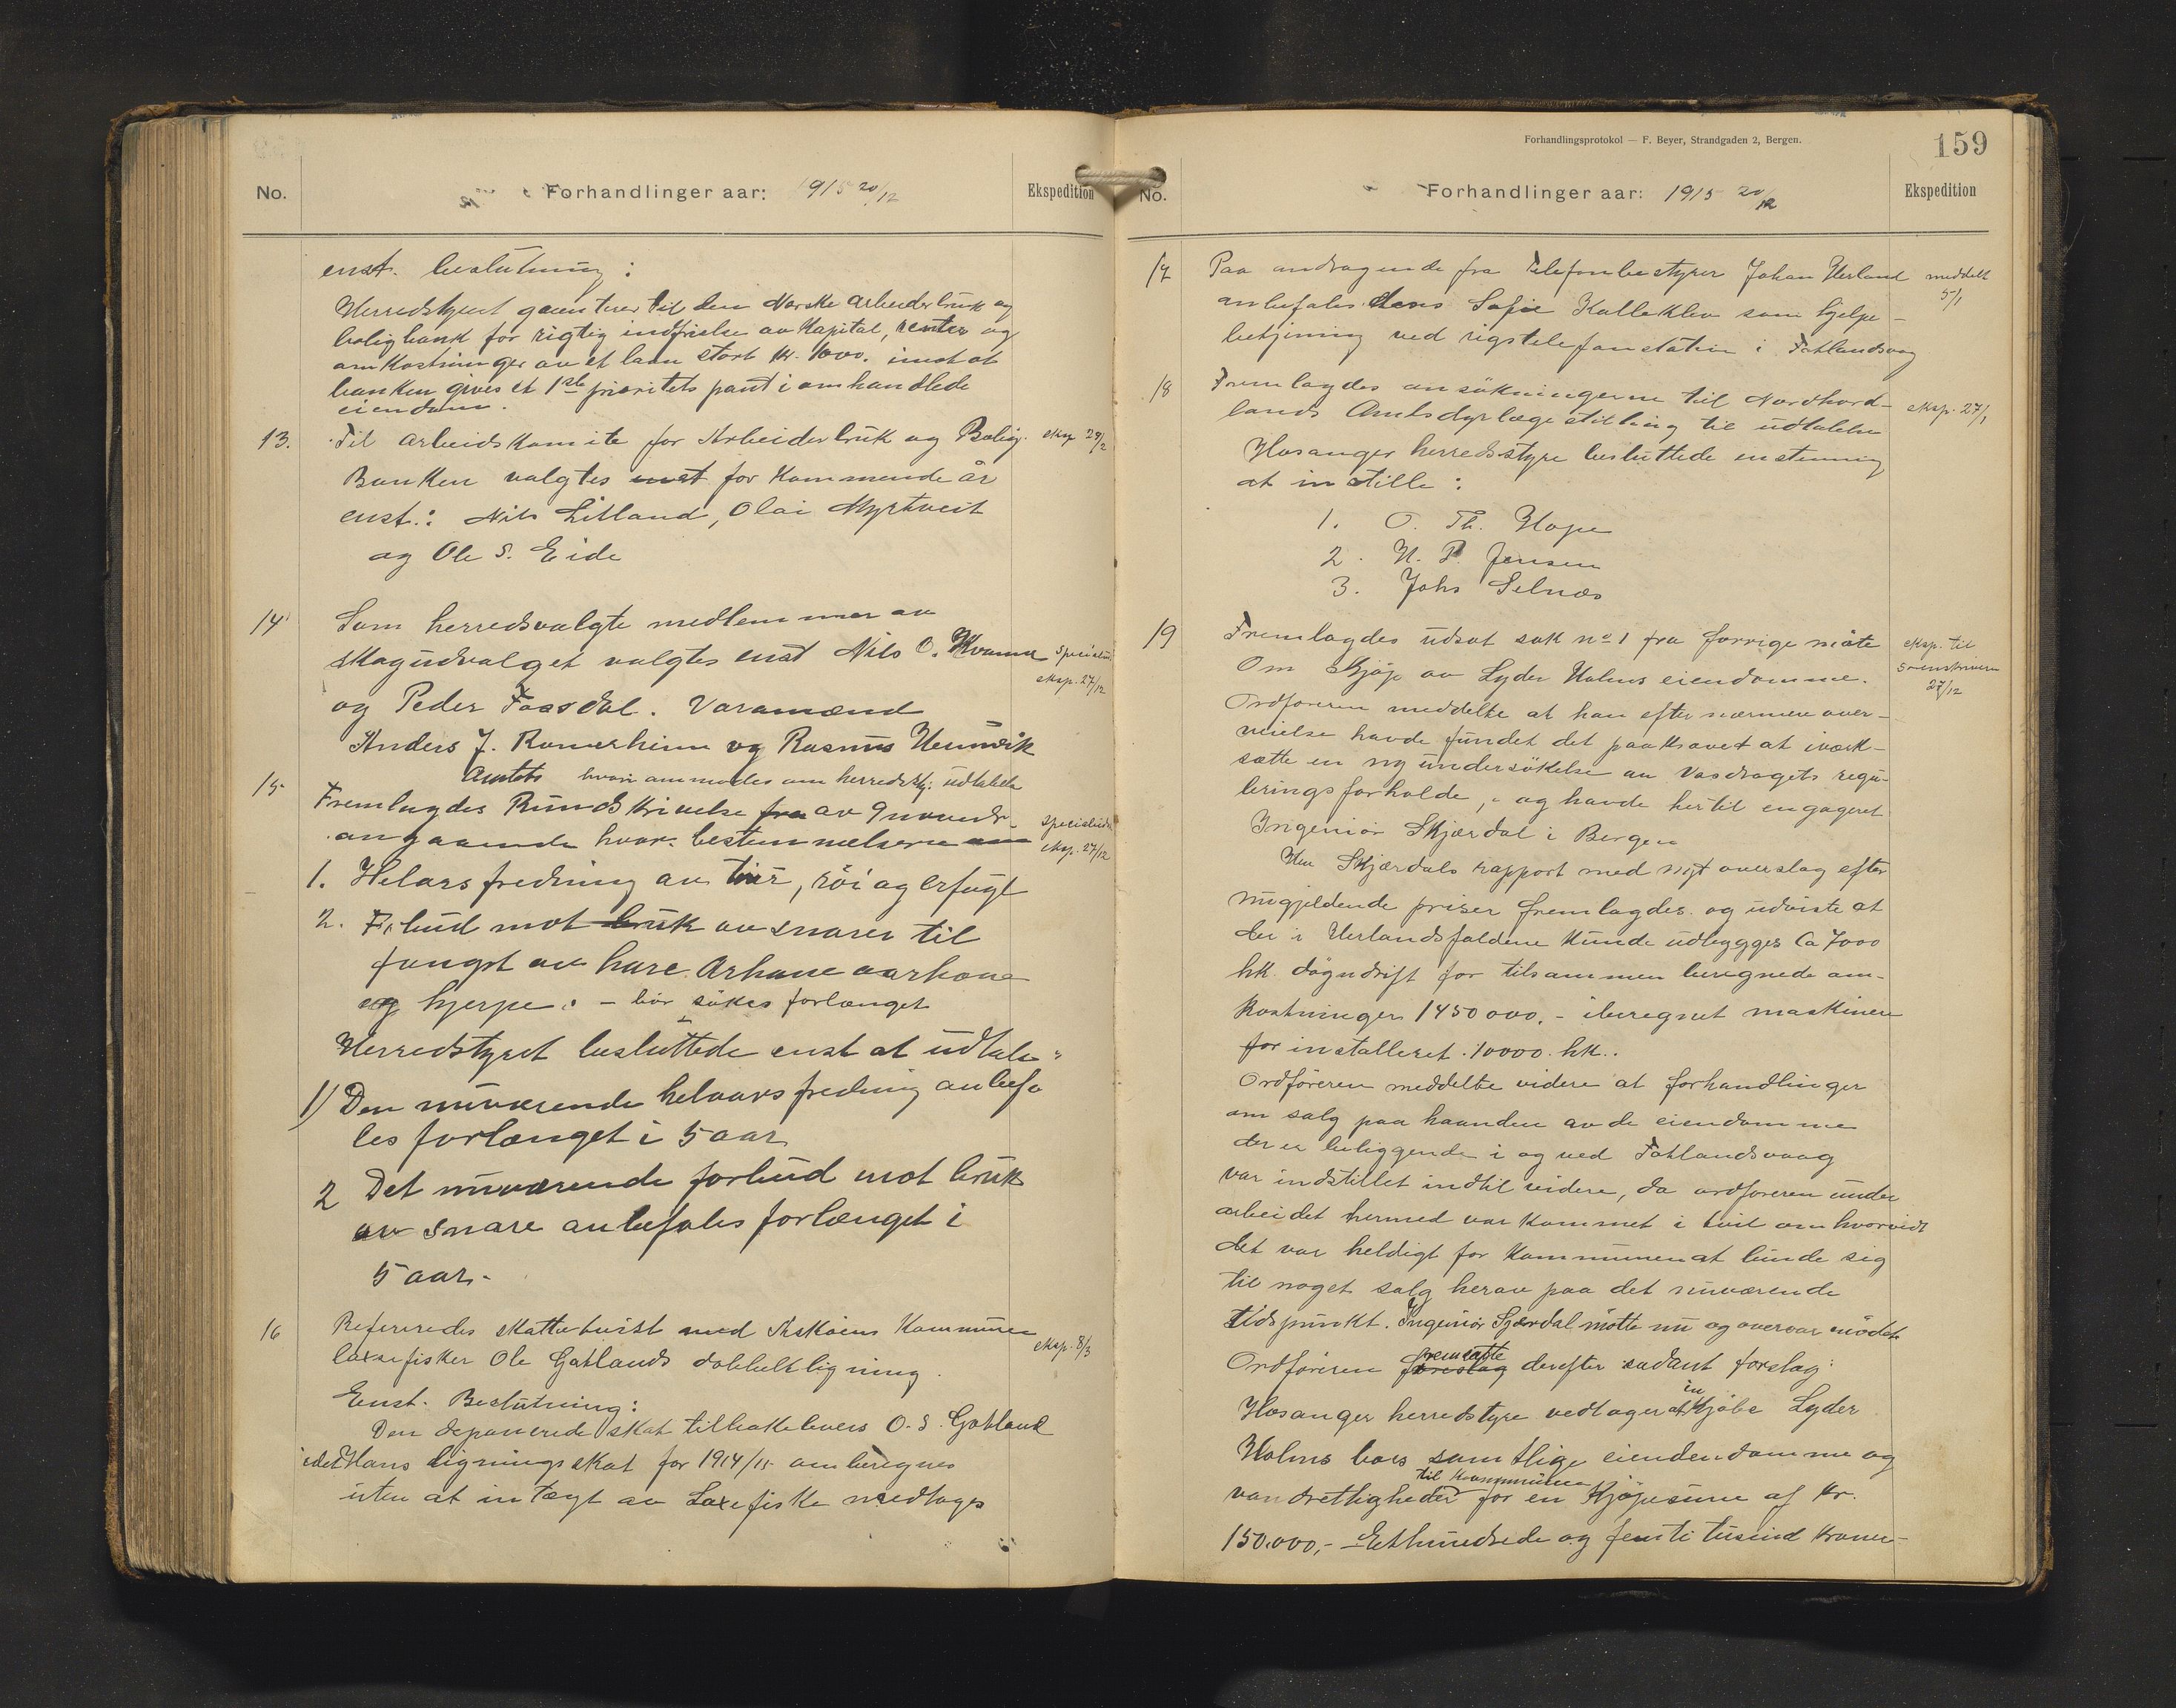 No. Forhandlinger aar: 1915 20/12 Ekspedition
enst. beslutning:
Herredstyret garenterer til den Norske arbeiderbruk og
boligbank for rigtig indfrielse av Kapital, renter og
omkostninger av et laan stort kr. 1000. imot at
banken gives et 1ste prioritets pant i omhandlede
eiendom.
13. Til arbeidskomite for Arbeiderbruk og Bolig- eksp 27/12
Banken valgtes enst for kommende år
enst.: Nils Litland, Olai Myrtveit
og Ole S. Eide
14 Som herredsvalgte medlemmer av
skogudvalget valgtes enst Nils O. Kvamme
eksp. 27/12
og Peder Fossdal. Varamænd
Anders J. Romerheim og Rasmus Hennøik
Amtets hvori anmodes om herredstyr. udtalelse
15 Fremlagdes Rundskrivelse fra av 9 novembr-
angaaende hvor. bestemmelserne om eksp. 27/12
1. Helaarsfredning av tiur, röi og erfugl
2. Forbud mot bruk av snarer til
fangst av hare. Arhane aarhøne
og hjerpe. – bör sökes forlænget
Herredstyret besluttede enst at udtale:
1) Den nuværende helaarsfredning anbefa
les forlænget i 5 aar
2 Det nuværende forbud mot bruk
av snare anbefales forlænget i
5 aar.
16 Refereredes skattetvist med Askøens Kommune eksp. 8/3
laxefisker Ole Gatlands dobbeltligning.
Enst. Beslutning:
Den deponerede skat tilbakelevers O. S. Gatland
idet Hans ligningsskat for 1914/15 omberegnes
uten at intægt av Laxefiske medtages
Forhandlingsprotokol — F. Beyer, Strandgaden 2, Bergen.
159
No. Forhandlinger aar: 1915 20/12 Ekspedition
17 Paa andragende fra Telefonbestyrer Johan Herland meddelt
5/1
anbefales Sofie Kalleklev som hjelpe-
betjening ved rigstelefonstation i Fotlandsvaag
18 Fremlagdes ansökningerne til Nordhord- eksp. 27/1
lands Amtsdyrlægestilling til udtalelse
Hosanger herredsstyre besluttede enstemmig
at instille:
1. O. Th. Hope
2. H. P. Jensen
3. Johs Selnæs
19 Fremlagdes udsat sak no 1 fra forrige möte eksp. til
Sorenskriveren
27/12
Om Kjöp av Lyder Holms eiendomme.
Ordföreren meddelte at han efter nærmere over-
veielse havde fundet det paakrævet at iværk-
sætte en ny undersökelse av Vasdragets regu-
leringsforholde, og havde hertil engageret
Ingeniör Skjærdal i Bergen
Hr. Skjærdals rapport med nyt overslag efter
nugjeldende priser fremlagdes og udviste at
der i Herlandsfaldene kunde udbygges Ca 7000
hk dögndrift for tilsammen beregnede om-
kostninger 1450000,- iberegnet maskineri
for installeret 10000 hk.
Ordföreren meddelte videre at forhandlinger
om salg paa haanden av de eiendomme
der er beliggende i og ved Fotlandsvaag
var indstillet indtil videre, da ordföreren under
arbeidet hermed var kommet i tvil om hvorvidt
det var heldigt for Kommunen at binde sig
til noget salg herav paa det nuværende
tidspunkt. Ingeniör Sjærdal mötte nu og overvar mödet
fremsatte
Ordföreren foreslag derefter sådant forslag:
in
Hosanger herredstyre vedtager at kjöbe Lyder
Holms boes samtlige eiendendomme og
til Kommunen
vandrettigheder for en Kjöpesum af kr.
150.000,- Ethundrede og femti tusind kroner-